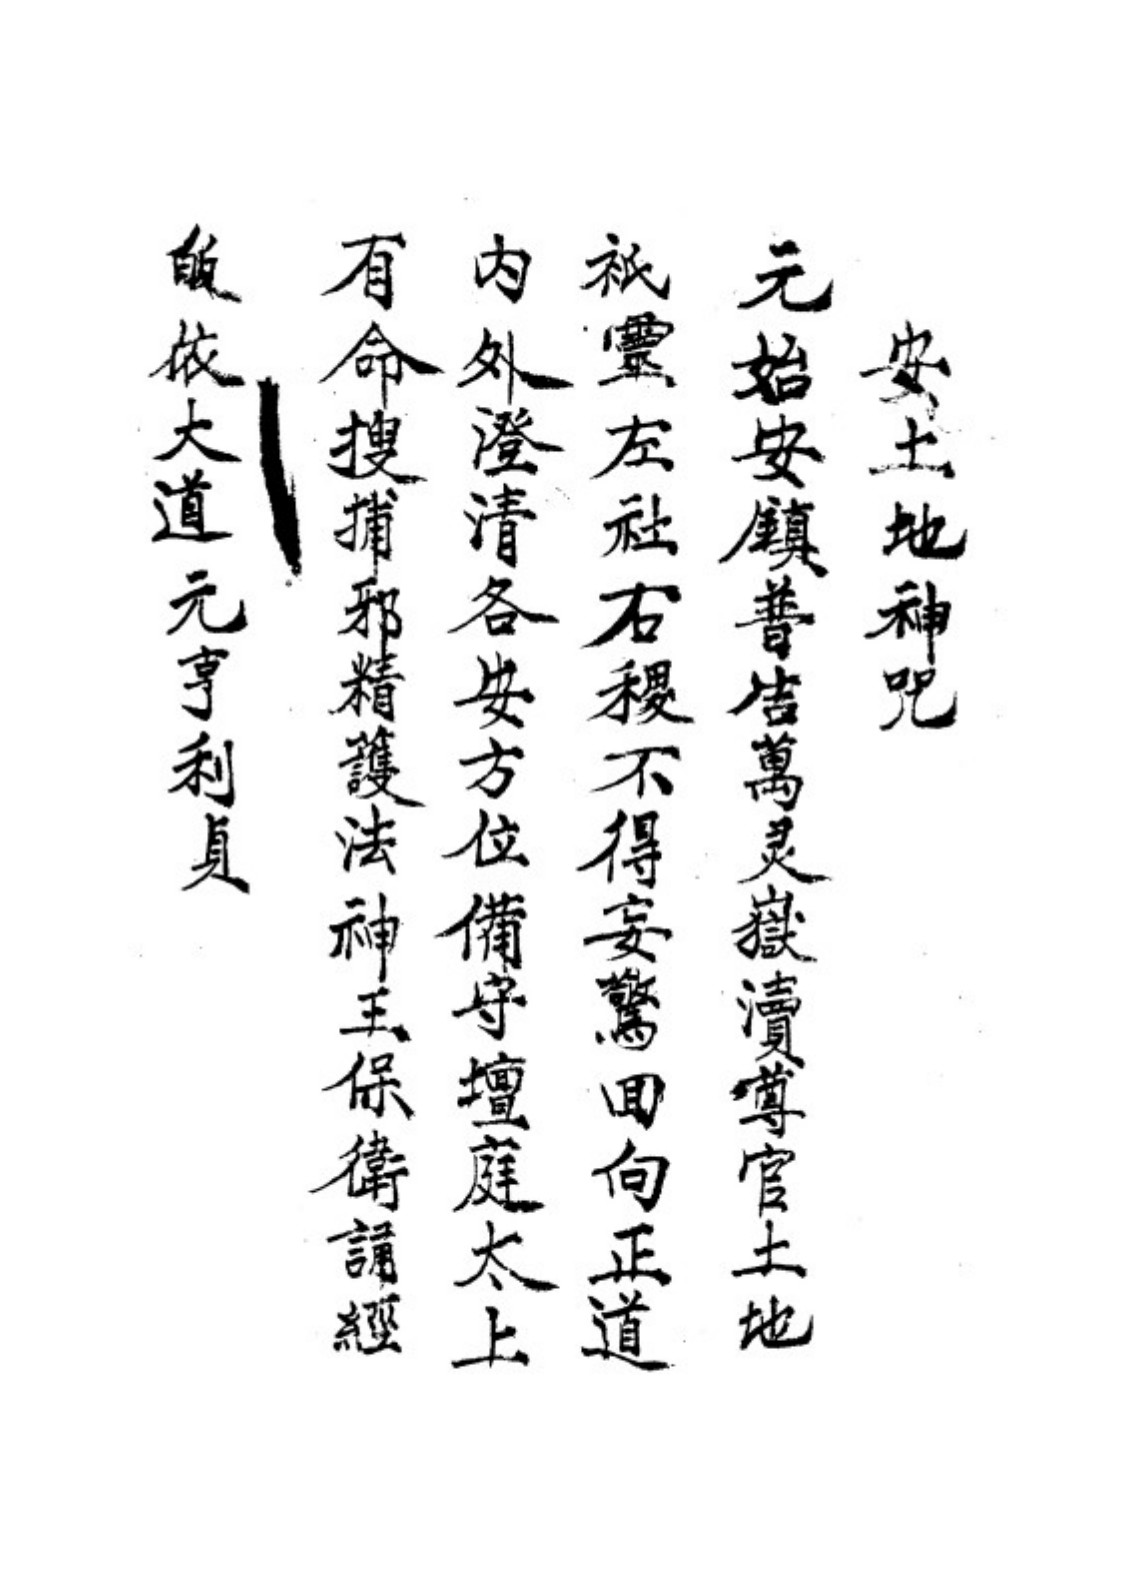 安土地神咒
元始安鎮普告萬灵嶽瀆尊官土地
祇靈左社右稷不得妄驚回向正道
內外澄清各安方位備守壇庭太上
有命搜捕邪精護法神王保衛誦經
皈依大道元亨利貞